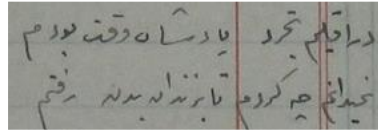 در اقلیم تجرد پادشاه وقت بودم
نمیدانم چه کردم تا بزندان بدن رفتم